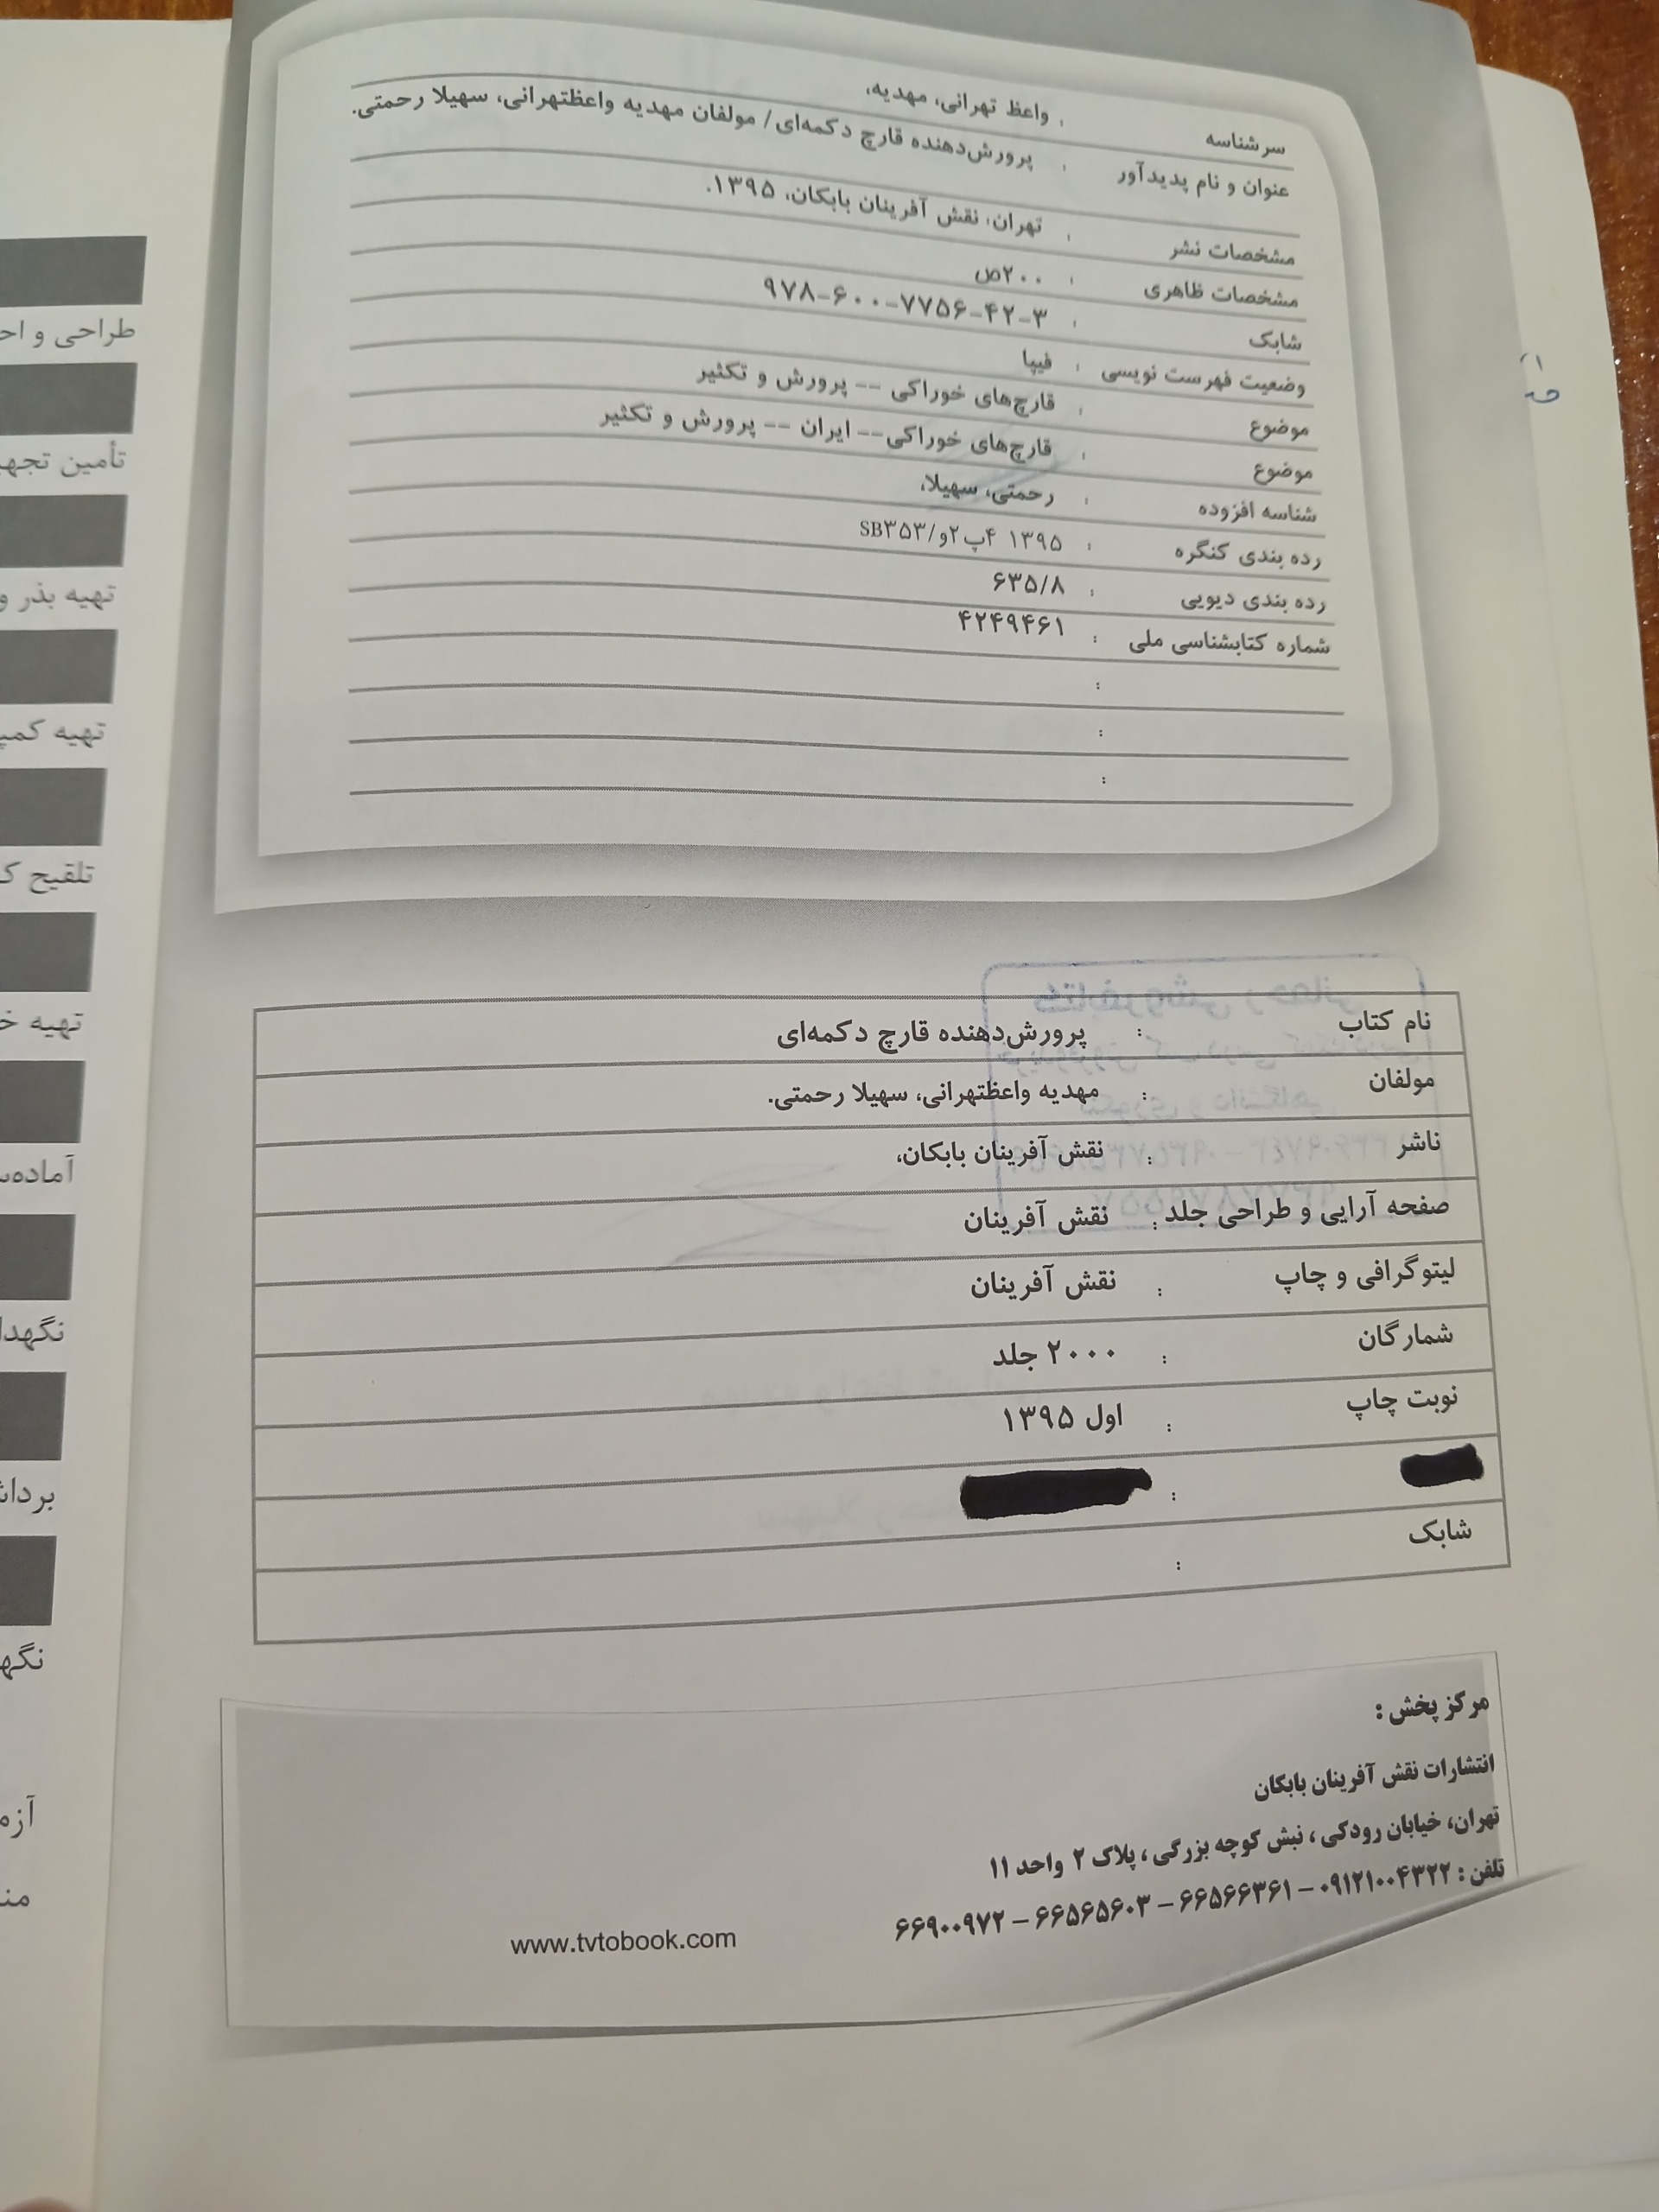 سرشناسه : واعظ تهرانی، مهدیه،
عنوان و نام پدیدآور : پرورش‌دهنده قارچ دکمه‌ای/ مولفان مهدیه واعظتهرانی، سهیلا رحمتی.
مشخصات نشر : تهران: نقش آفرینان بابکان، ۱۳۹۵.
مشخصات ظاهری : ۲۰۰ص
شابک : ۹۷۸-۶۰۰-۷۷۵۶-۴۲-۳
وضعیت فهرست نویسی : فیپا
موضوع : قارچ‌های خوراکی -- پرورش و تکثیر
موضوع : قارچ‌های خوراکی-- ایران -- پرورش و تکثیر
شناسه افزوده : رحمتی، سهیلا،
رده بندی کنگره : ۱۳۹۵ ۴پ۲و/SB۳۵۳
رده بندی دیویی : ۶۳۵/۸
شماره کتابشناسی ملی : ۴۲۴۹۴۶۱
:
:
:
نام کتاب : پرورش‌دهنده قارچ دکمه‌ای
مولفان : مهدیه واعظتهرانی، سهیلا رحمتی.
ناشر : نقش آفرینان بابکان،
صفحه آرایی و طراحی جلد : نقش آفرینان
لیتوگرافی و چاپ : نقش آفرینان
شمارگان : ۲۰۰۰ جلد
نوبت چاپ : اول ۱۳۹۵
:
شابک :
مرکز پخش :
انتشارات نقش آفرینان بابکان
تهران، خیابان رودکی ، نبش کوچه بزرگی ، پلاک ۲ واحد ۱۱
تلفن : ۰۹۱۲۱۰۰۴۳۲۲ – ۶۶۵۶۶۳۶۱ – ۶۶۵۶۵۶۰۳ – ۶۶۹۰۰۹۷۲
www.tvtobook.com
طراحی و
تهیه بذر و
تلقیح
تهیه